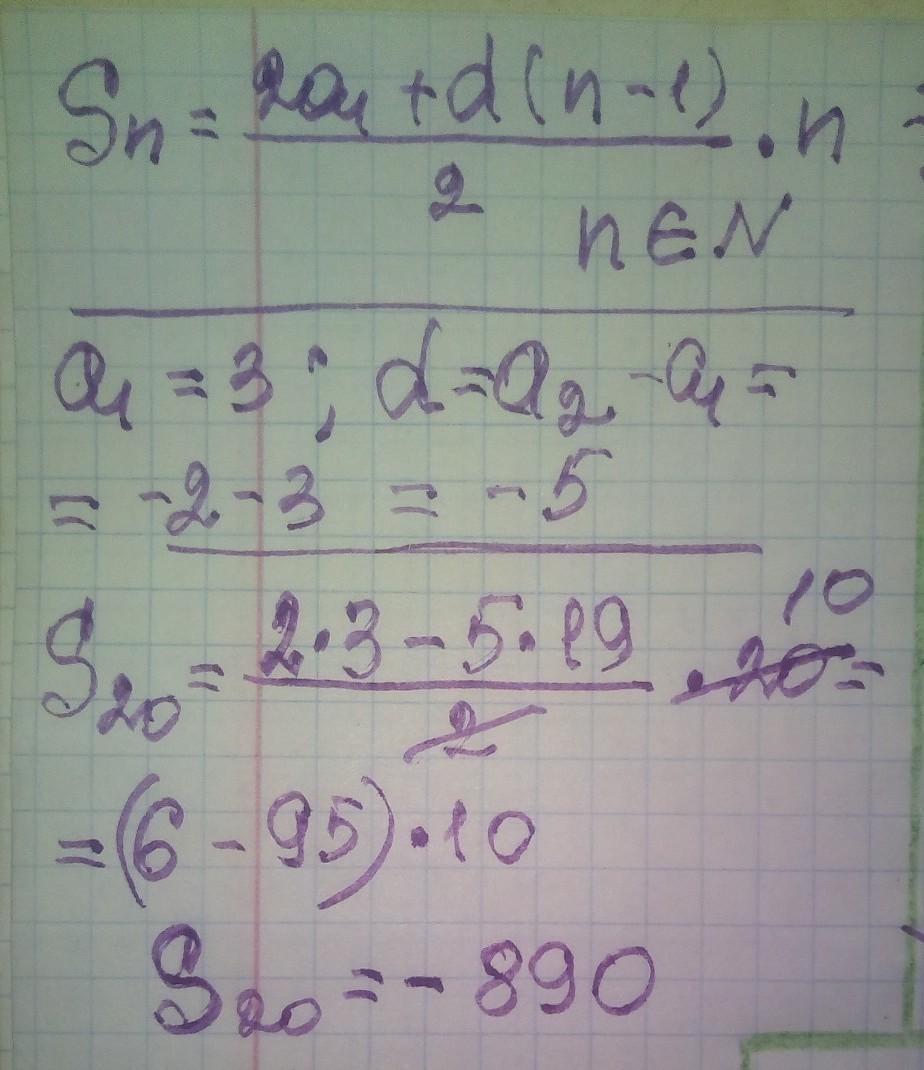 Sn = (2a₁ + d(n-1))/2 · n =
n ∈ N
a₁ = 3; d = a₂ - a₁ =
= -2 - 3 = -5
S₂₀ = (2·3 - 5·19)/2 · 20 = 10
= (6 - 95) · 10
S₂₀ = - 890